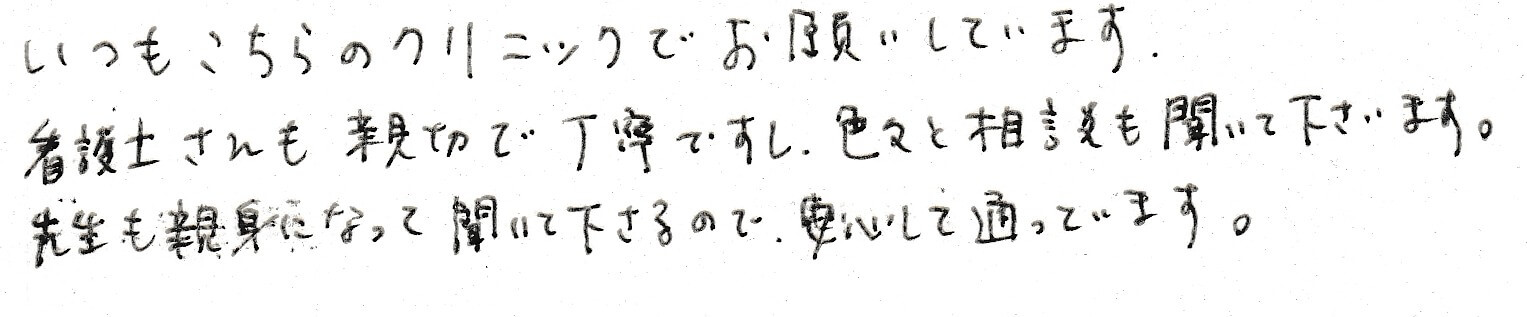 いつもこちらのクリニックでお願いしています.
看護士さんも親切で丁寧ですし、色々と相談も聞いて下さいます。
先生も親身になって聞いて下さるので、安心して通っています。